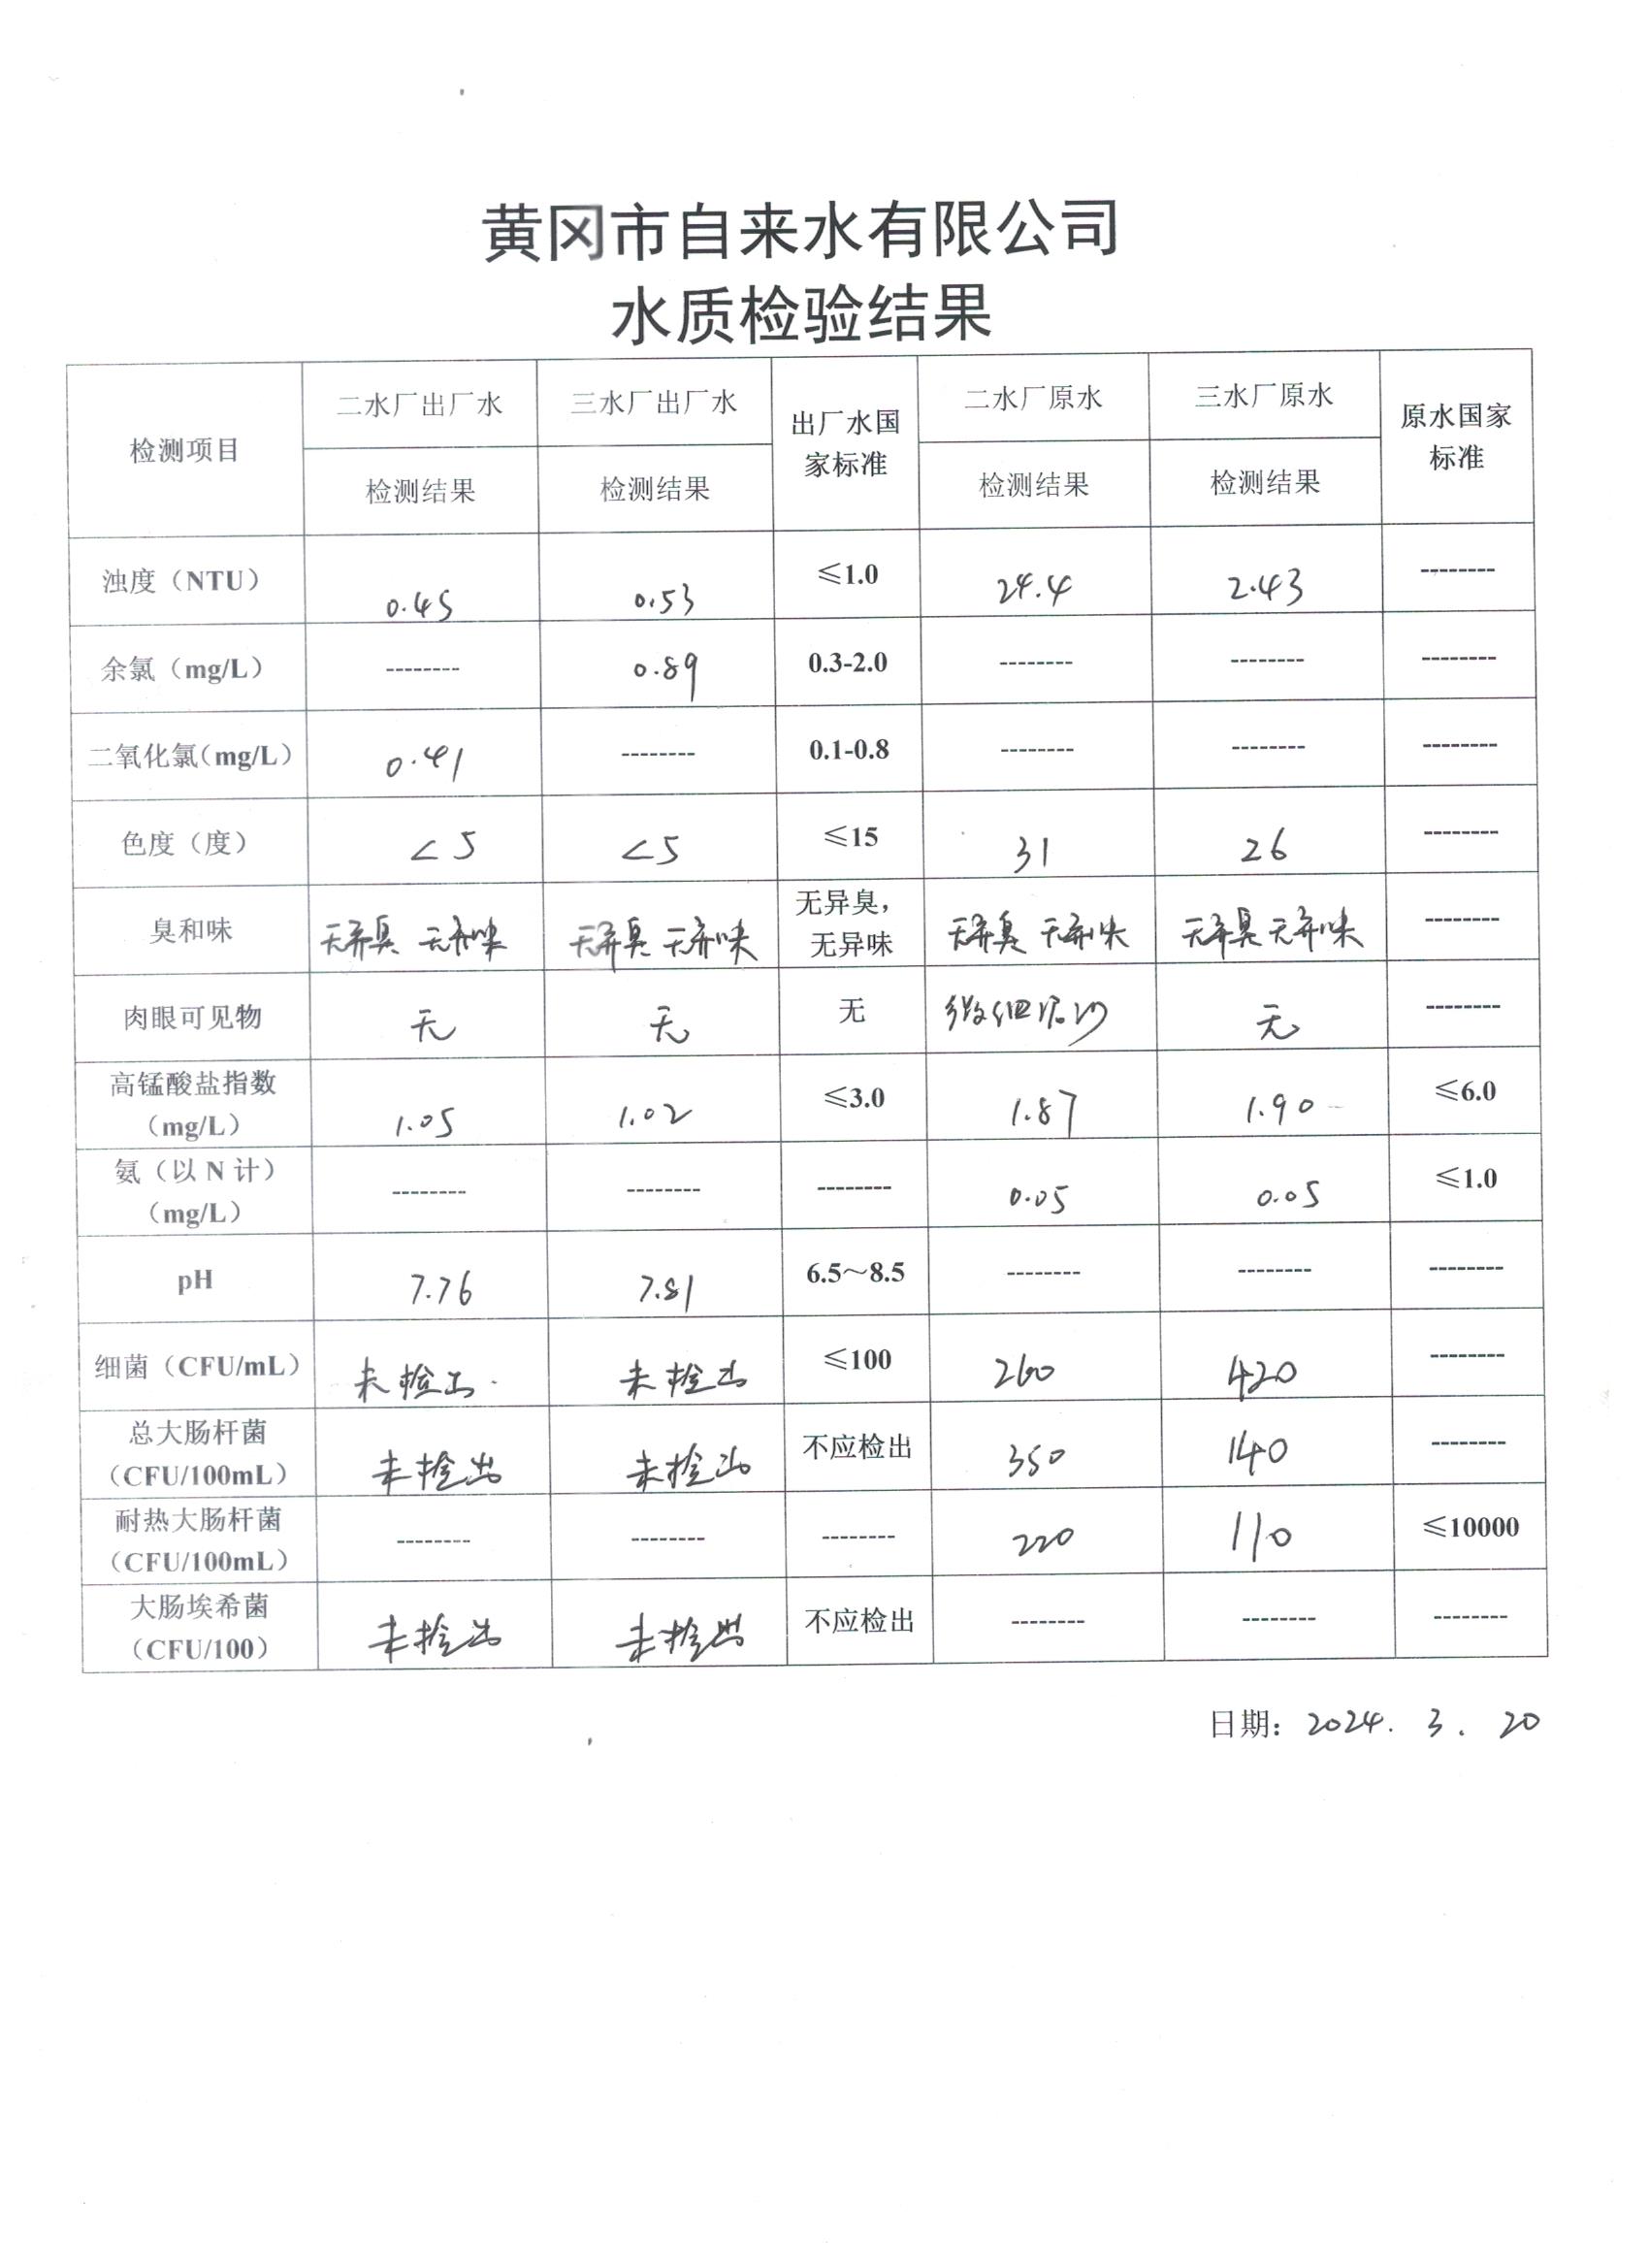 黄冈市自来水有限公司
水质检验结果
检测项目 二水厂出厂水 三水厂出厂水 出厂水国家标准 二水厂原水 三水厂原水 原水国家标准
检测结果 检测结果 检测结果 检测结果
浊度（NTU） 0.45 0.53 ≤1.0 24.4 2.43 --------
余氯（mg/L） -------- 0.89 0.3-2.0 -------- -------- --------
二氧化氯（mg/L） 0.41 -------- 0.1-0.8 -------- -------- --------
色度（度） <5 <5 ≤15 31 26 --------
臭和味 无异臭 无异味 无异臭 无异味 无异臭，无异味 无异臭 无异味 无异臭 无异味 --------
肉眼可见物 无 无 无 微细泥沙 无 --------
高锰酸盐指数（mg/L） 1.05 1.02 ≤3.0 1.87 1.90 ≤6.0
氨（以 N 计）（mg/L） -------- -------- -------- 0.05 0.05 ≤1.0
pH 7.76 7.81 6.5～8.5 -------- -------- --------
细菌（CFU/mL） 未检出 未检出 ≤100 260 420 --------
总大肠杆菌（CFU/100mL） 未检出 未检出 不应检出 350 140 --------
耐热大肠杆菌（CFU/100mL） -------- -------- -------- 220 110 ≤10000
大肠埃希菌（CFU/100） 未检出 未检出 不应检出 -------- -------- --------
日期：2024. 3. 20